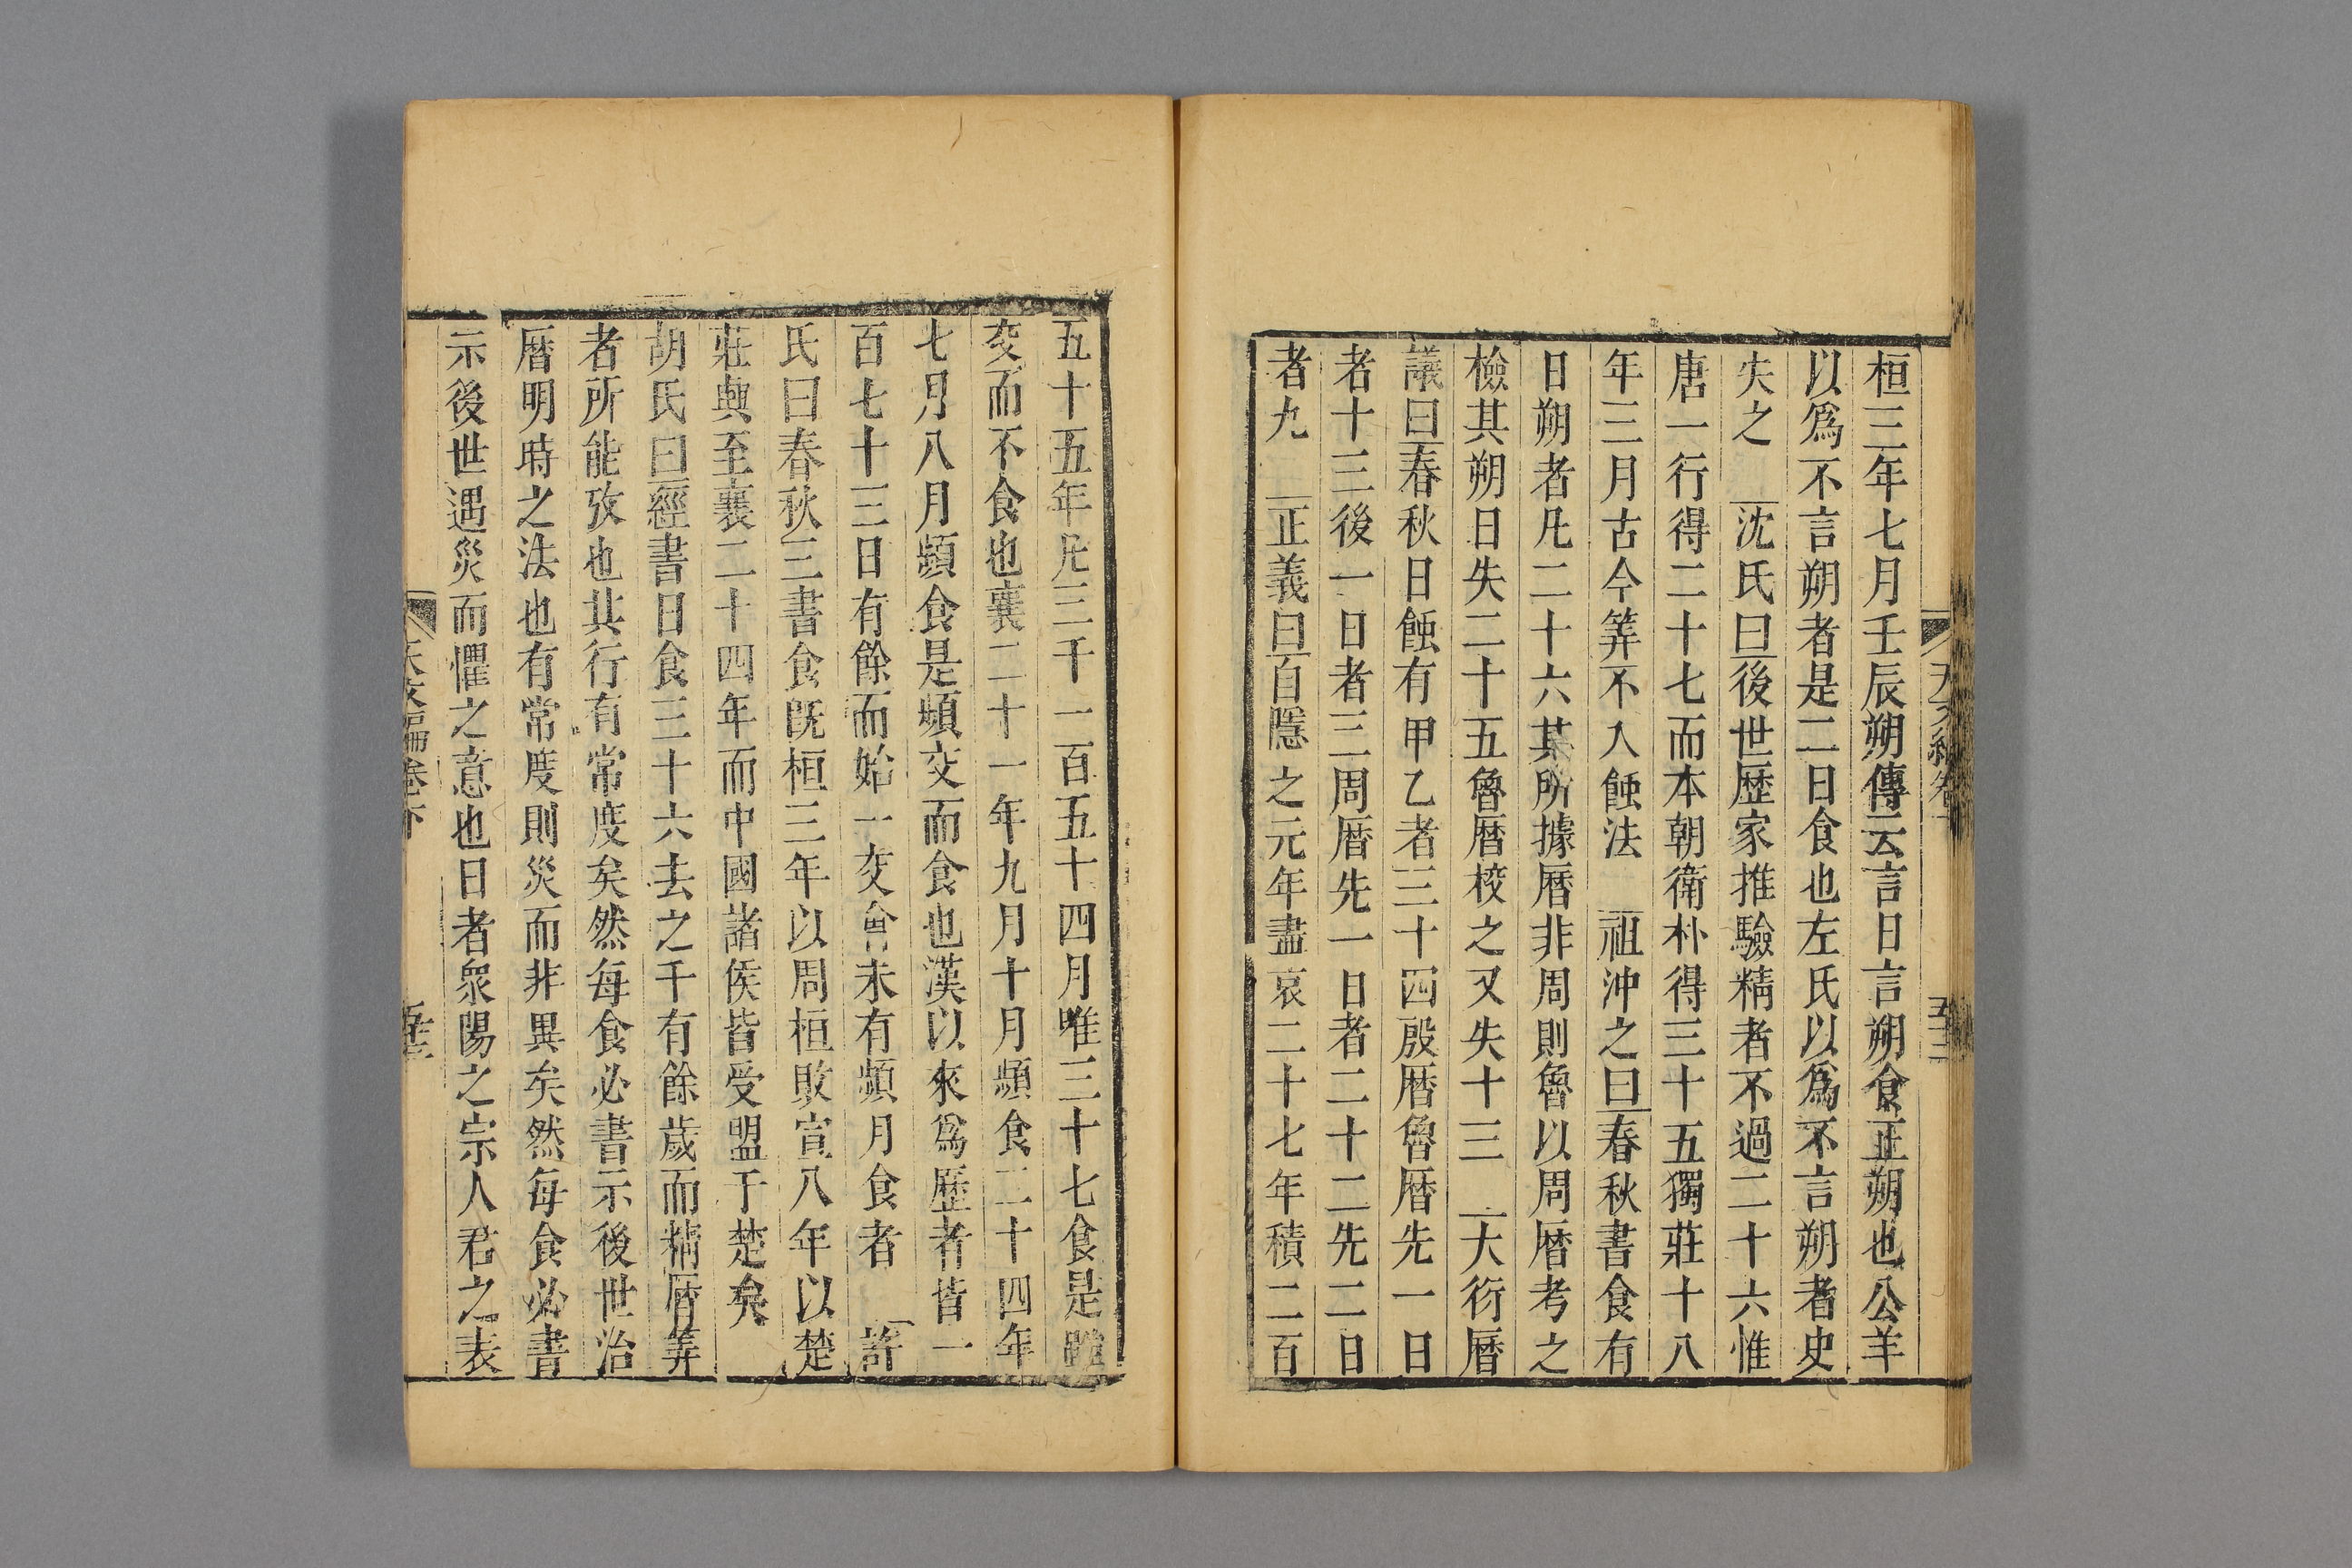 桓三年七月壬辰朔傳云言日言朔食正朔也公羊
以爲不言朔者是二日食也左氏以爲不言朔者史
失之 沈氏曰後世歴家推驗精者不過二十六惟
唐一行得二十七而本朝衛朴得三十五獨莊十八
年三月古今筭不入蝕法 祖沖之曰春秋書食有
日朔者凡二十六其所據曆非周則魯以周曆考之
檢其朔日失二十五魯曆校之又失十三 大衍曆
議曰春秋日蝕有甲乙者三十四殷曆魯曆先一日
者十三後一日者三周曆先一日者二十二先二日
者九 正義曰自隱之元年盡哀二十七年積二百
五十五年凡三千一百五十四月唯三十七食是雖
交而不食也襄二十一年九月十月頻食二十四年
七月八月頻食是頻交而食也漢以來爲歴者皆一
百七十三日有餘而始一交會未有頻月食者 許
氏曰春秋三書食既桓三年以周桓敗宣八年以楚
莊興至襄二十四年而中國諸侯皆受盟于楚矣
胡氏曰經書日食三十六去之千有餘歲而精曆筭
者所能攷也其行有常度矣然每食必書示後世治
曆明時之法也有常度則災而非異矣然每食必書
示後世遇災而懼之意也日者衆陽之宗人君之表
天文編卷下